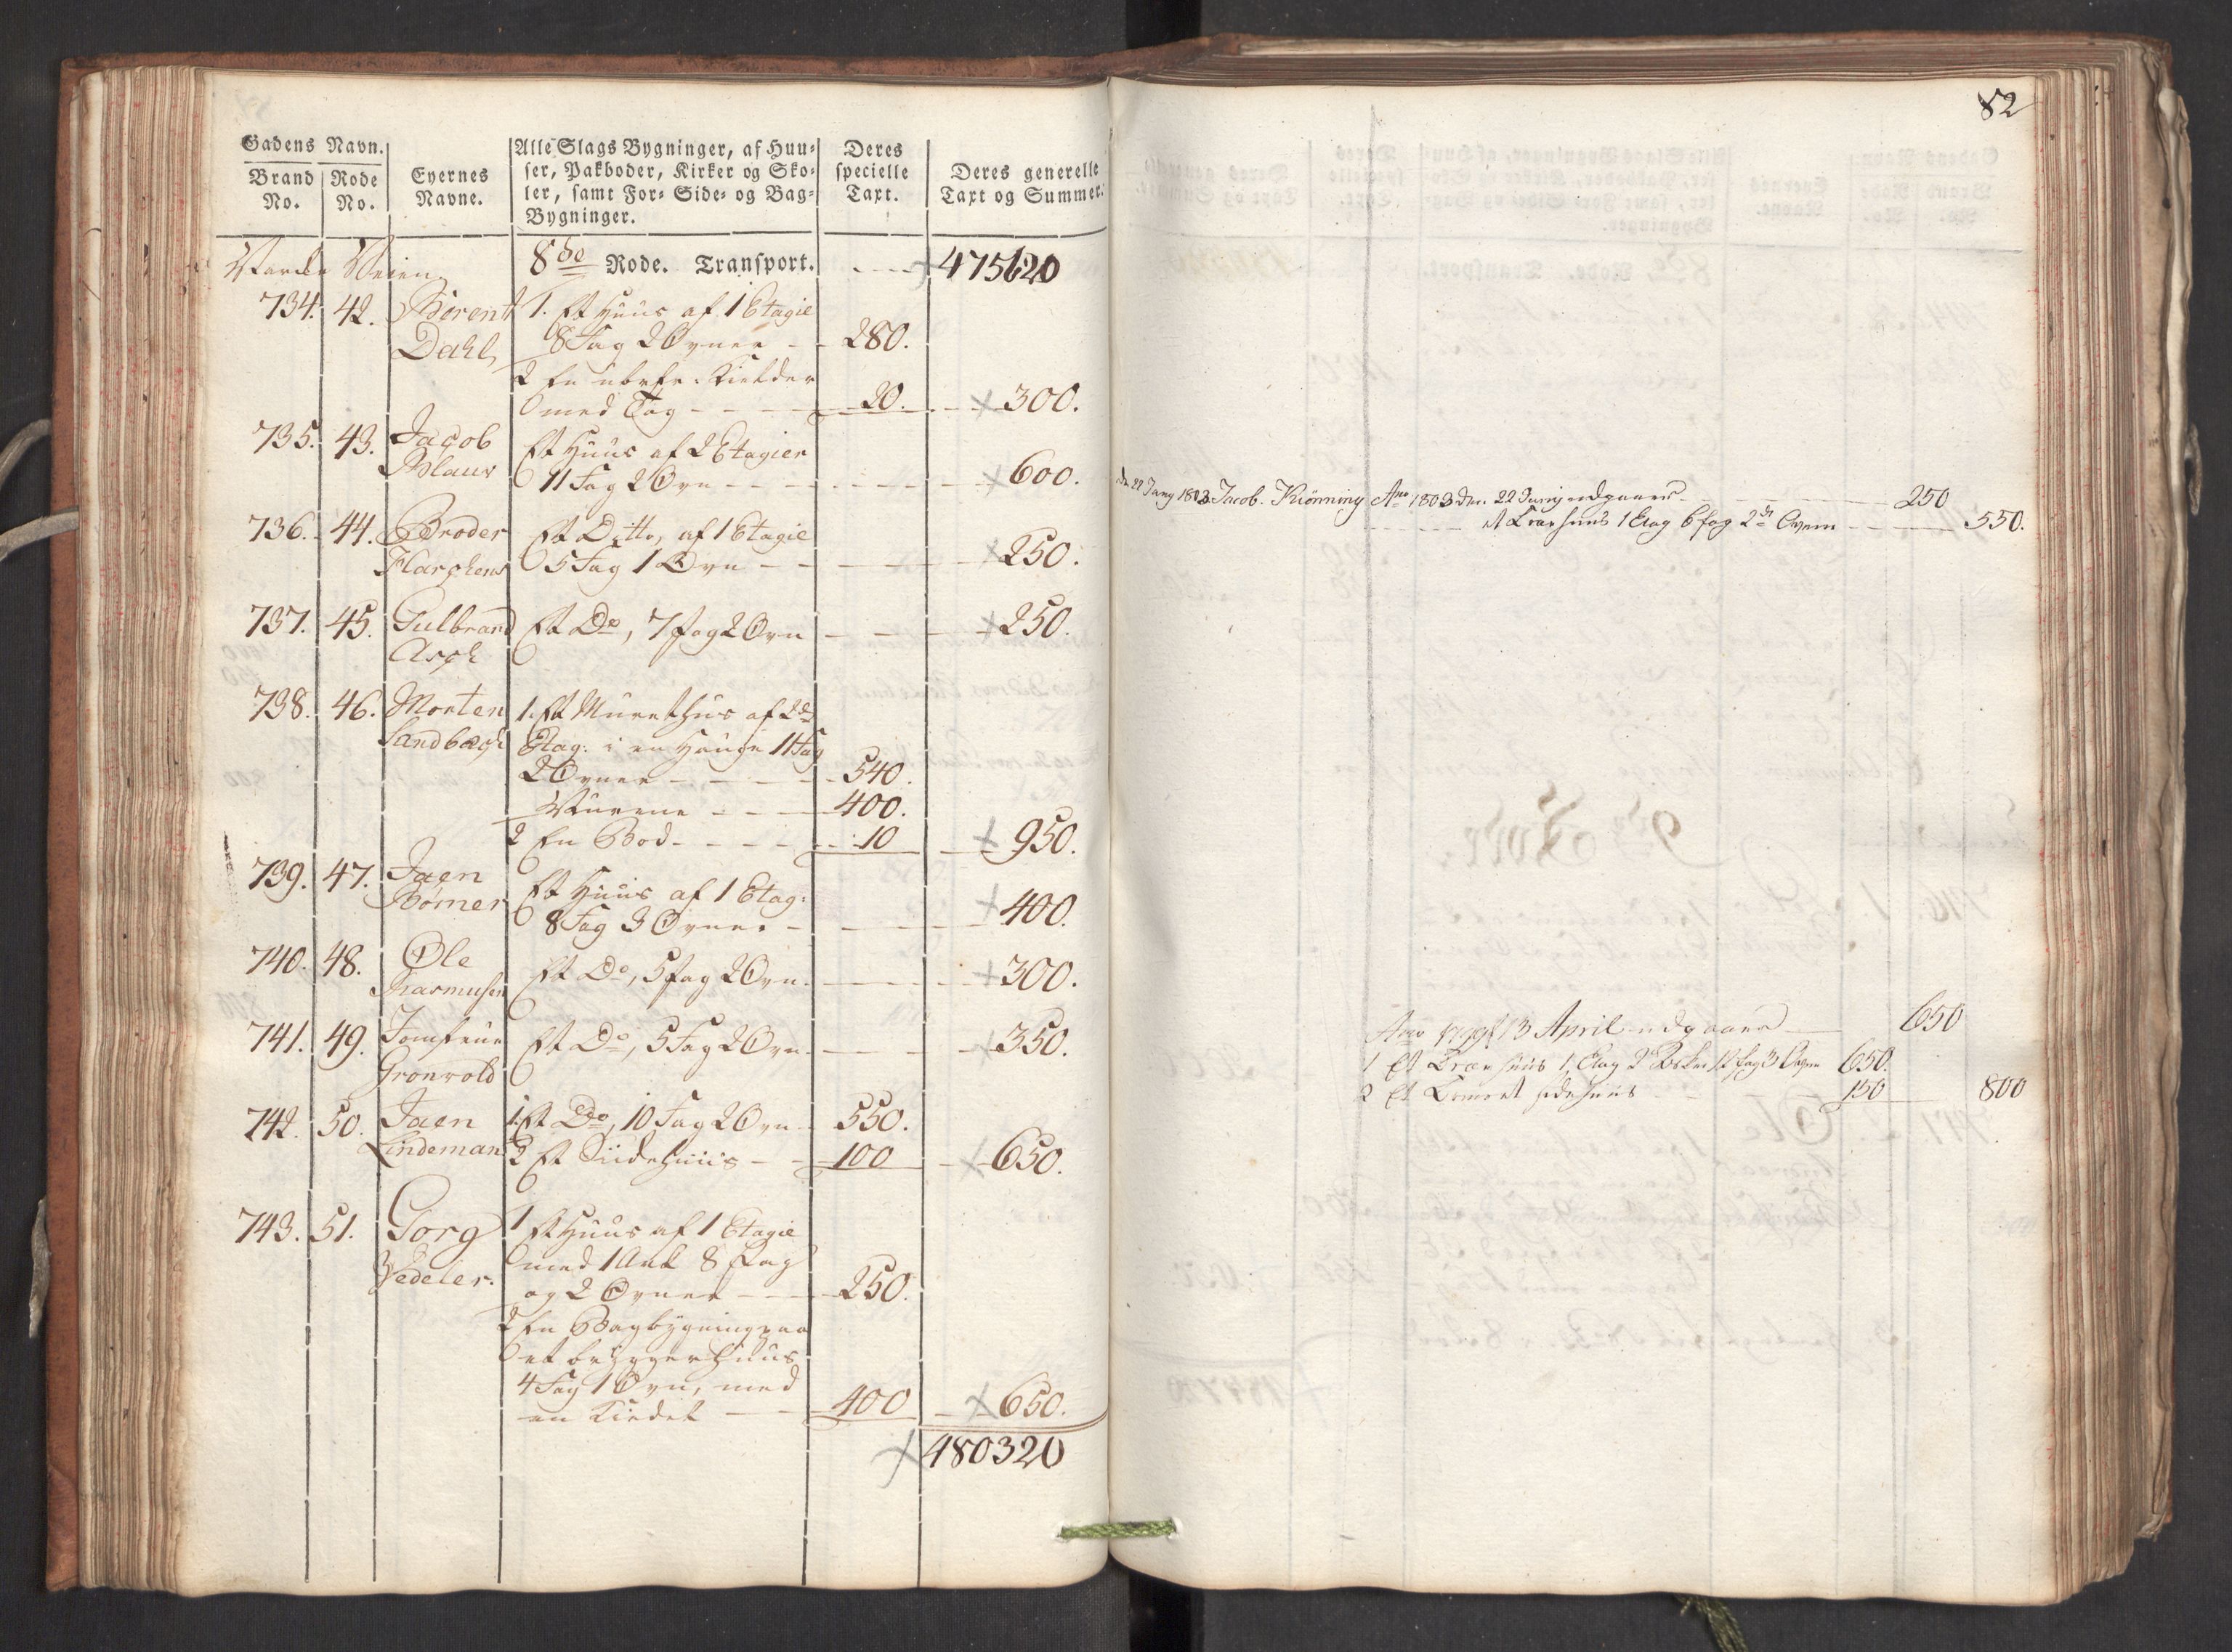 Gadens Navn.
Brand No.
Rode No.
Eyernes Navne.
Alle Slags Bygninger, af Huu-
ser, Pakboder, Kirker og Sko-
ler, samt For- Side- og Bag-
Bygninger.
Deres specielle Taxt.
Deres generelle Taxt og Summer.
Veien 8de Rode. Transport. 475620
734. 42. Berent 1. Et Huus af 1 Etagie
Dahl 8 Fag 2 Ovner 280.
2 En Kielder
med Tag 20. 300.
735. 43. Jacob Et Huus af 2 Etagier
Blauw 11 Fag 2 Ovn 600.
736. 44. Broder Et Ditto, af 1 Etagie
5 Fag 1 Ovn 250.
737. 45. Gulbrand Et Do, 7 fag 2 Ovn 250.
Asch
738. 46. Morten 1. Et Muret Huus af 2de
Sandbech Etag: i en Hauge 11 Fag
2 Ovner 540.
Murene 400.
2 En Bod 10 950.
739. 47. Jaen Et Huus af 1 Etag:
Bömer 8 Fag 3 Ovner 400.
740. 48. Ole Et Do, 5 Fag 2 Ovn. 300.
Rasmusen
741. 49. Jomfrue Et Do, 5 Fag 2 Ovn. 350.
Gronvold
742. 50. Jaen 1. Et Do, 10 Fag 2 Ovn 550.
Lindeman 2 Et Siidehuus 100 650.
743. 51. Gorg 1 Et Huus af 1 Etagie
Vedeler. med 1 Ark 8 Fag
og 2 Ovner 250.
2 En Bagbygning paa
et bryggerhuus
4 Fag 1 Ovn, med
en Kiedel 400 650.
480320
82
Jacob Krönning Ano 1803 den 22 Junij udgaaer 250
et Træehuus 1 Etag 6 fag 2de Ovne 550.
Ano 1799 13 April udgaaer 650
1 Et Træehuus 1 Etag 12 fag 3 Ovne 650.
2 Et sidehuus 150 800